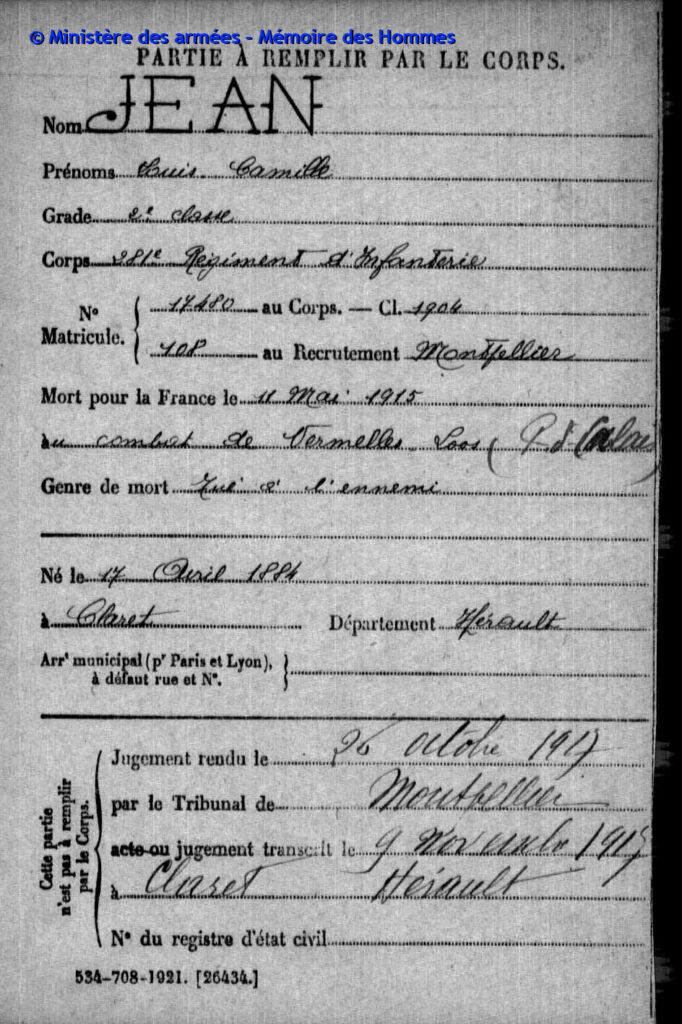 © Ministère des armées - Mémoire des Hommes
PARTIE À REMPLIR PAR LE CORPS.
Nom JEAN
Prénoms Louis Camille
Grade 2e classe
Corps 281e Régiment d'Infanterie
No Matricule. 17480 au Corps. — Cl. 1904
108 au Recrutement Montpellier
Mort pour la France le 11 Mai 1915
au combat de Vermelles-Loos (P. d. Calais)
Genre de mort Tué à l'ennemi
Né le 17 Avril 1884
à Claret Département Hérault
Arrt municipal (pr Paris et Lyon),
à défaut rue et No.
Cette partie n'est pas à remplir par le Corps.
Jugement rendu le 26 octobre 1917
par le Tribunal de Montpellier
acte ou jugement transcrit le 9 Novembre 1917
à Claret Hérault
No du registre d'état civil
534-708-1921. [26434.]